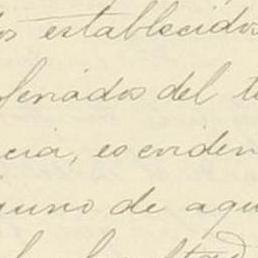 os establecidos
señados del t
cia, es eviden
guno de aqu